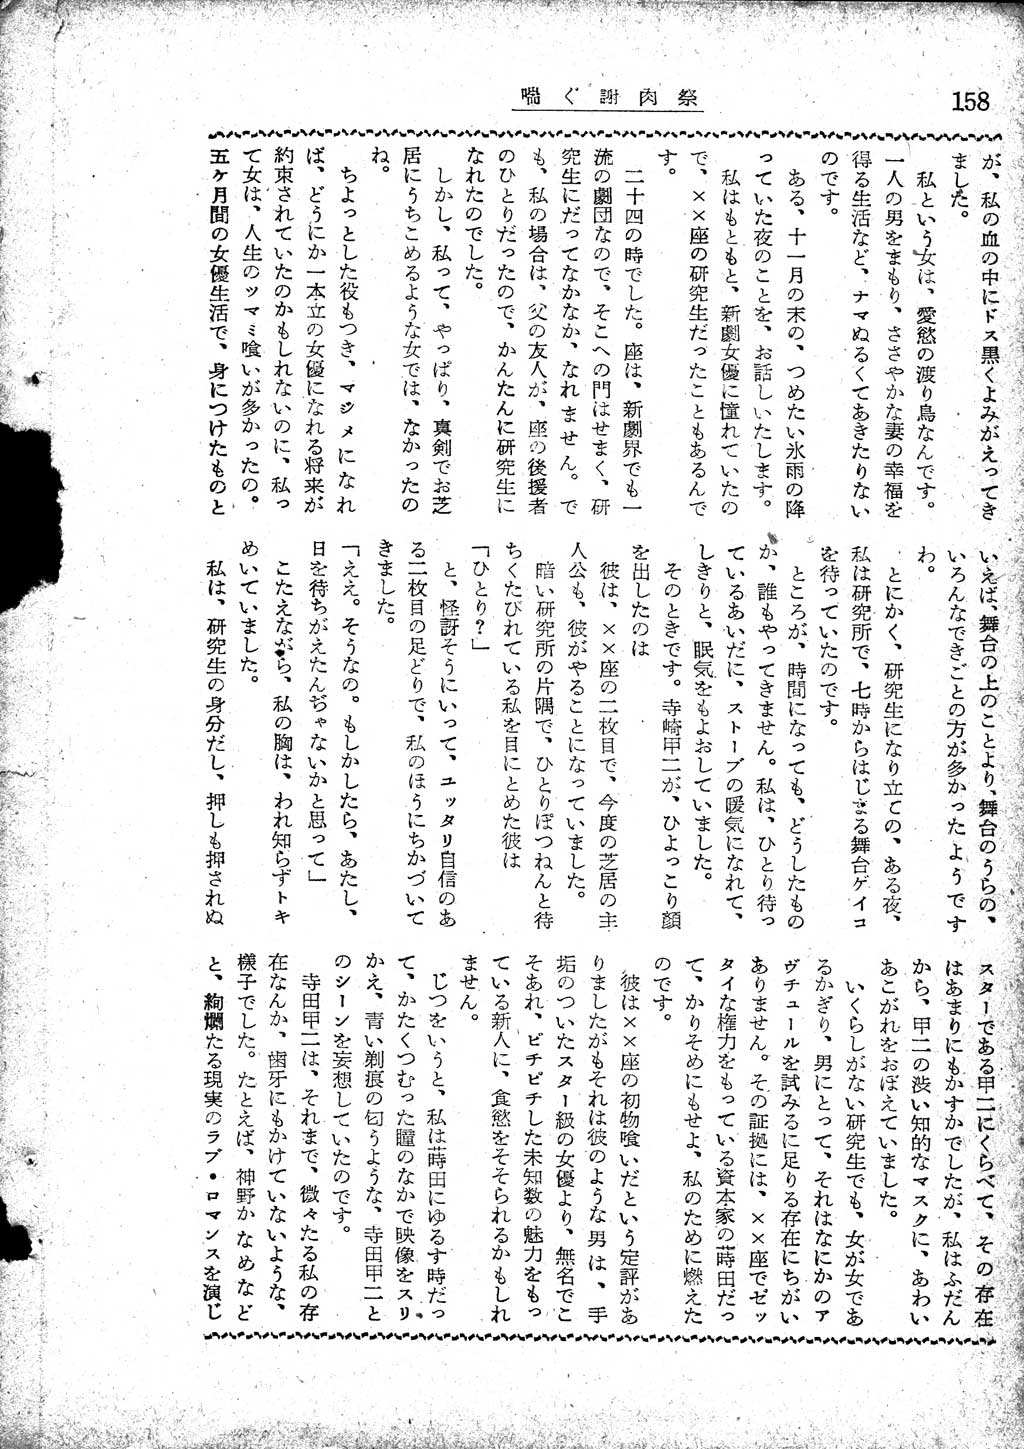 喘ぐ謝肉祭
158
が、私の血の中にドス黒くよみがえってき
ました。
　私という女は、愛慾の渡り鳥なんです。
一人の男をまもり、ささやかな妻の幸福を
得る生活など、ナマぬるくてあきたりない
のです。
　ある、十一月の末の、つめたい氷雨の降
っていた夜のことを、お話しいたします。
　私はもともと、新劇女優に憧れていたの
で、××座の研究生だったこともあるんで
す。
　二十四の時でした。座は、新劇界でも一
流の劇団なので、そこへの門はせまく、研
究生にだってなかなか、なれません。で
も、私の場合は、父の友人が、座の後援者
のひとりだったので、かんたんに研究生に
なれたのでした。
　しかし、私って、やっぱり、真剣でお芝
居にうちこめるような女では、なかったの
ね。
　ちよっとした役もつき、マジメになれ
ば、どうにか一本立の女優になれる将来が
約束されていたのかもしれないのに、私っ
て女は、人生のツマミ喰いが多かったの。
五ヶ月間の女優生活で、身につけたものと
いえば、舞台の上のことより、舞台のうらの、
いろんなできごとの方が多かったようです
わ。
　とにかく、研究生になり立ての、ある夜、
私は研究所で、七時からはじまる舞台ゲイコ
を待っていたのです。
　ところが、時間になっても、どうしたもの
か、誰もやってきません。私は、ひとり待っ
ているあいだに、ストーブの暖気になれて、
しきりと、眠気をもよおしていました。
　そのときです。寺崎甲二が、ひよっこり顔
を出したのは
　彼は、××座の二枚目で、今度の芝居の主
人公も、彼がやることになっていました。
　暗い研究所の片隅で、ひとりぽつねんと待
ちくたびれている私を目にとめた彼は
「ひとり？」
　と、怪訝そうにいって、ユッタリ自信のあ
る二枚目の足どりで、私のほうにちかづいて
きました。
「ええ。そうなの。もしかしたら、あたし、
日を待ちがえたんぢゃないかと思って」
　こたえながら、私の胸は、われ知らずトキ
めいていました。
　私は、研究生の身分だし、押しも押されぬ
スターである甲二にくらべて、その存在
はあまりにもかすかでしたが、私はふだん
から、甲二の渋い知的なマスクに、あわい
あこがれをおぼえていました。
　いくらしがない研究生でも、女が女であ
るかぎり、男にとって、それはなにかのア
ヴチュールを試みるに足りる存在にちがい
ありません。その証拠には、××座でゼッ
タイな権力をもっている資本家の蒔田だっ
て、かりそめにもせよ、私のために燃えた
のです。
　彼は××座の初物喰いだという定評があ
りましたがもそれは彼のような男は、手
垢のついたスター級の女優より、無名でこ
そあれ、ビチビチした未知数の魅力をもっ
ている新人に、食慾をそそられるかもしれ
ません。
　じつをいうと、私は蒔田にゆるす時だっ
て、かたくつむった瞳のなかで映像をスリ
かえ、青い剃痕の匂うような、寺田甲二と
のシーンを妄想していたのです。
　寺田甲二は、それまで、微々たる私の存
在なんか、歯牙にもかけていないような、
様子でした。たとえば、神野かなめなど
と、絢爛たる現実のラブ・ロマンスを演じ